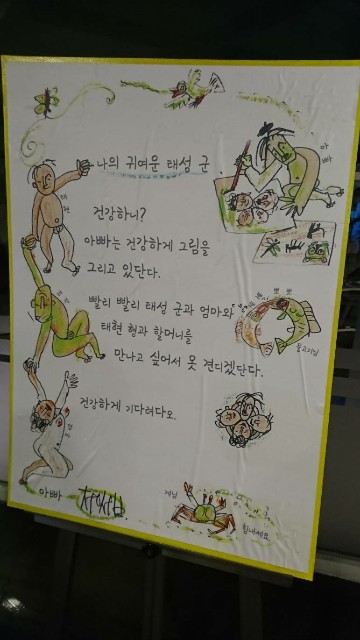 나의 귀여운 태성 군
건강하니?
아빠는 건강하게 그림을
그리고 있단다.
빨리 빨리 태성 군과 엄마와
태현 형과 할머니를
만나고 싶어서 못 견디겠단다.
건강하게 기다려다오.
아빠
아빠
뽀뽀
물고기님
게님
힘내세요